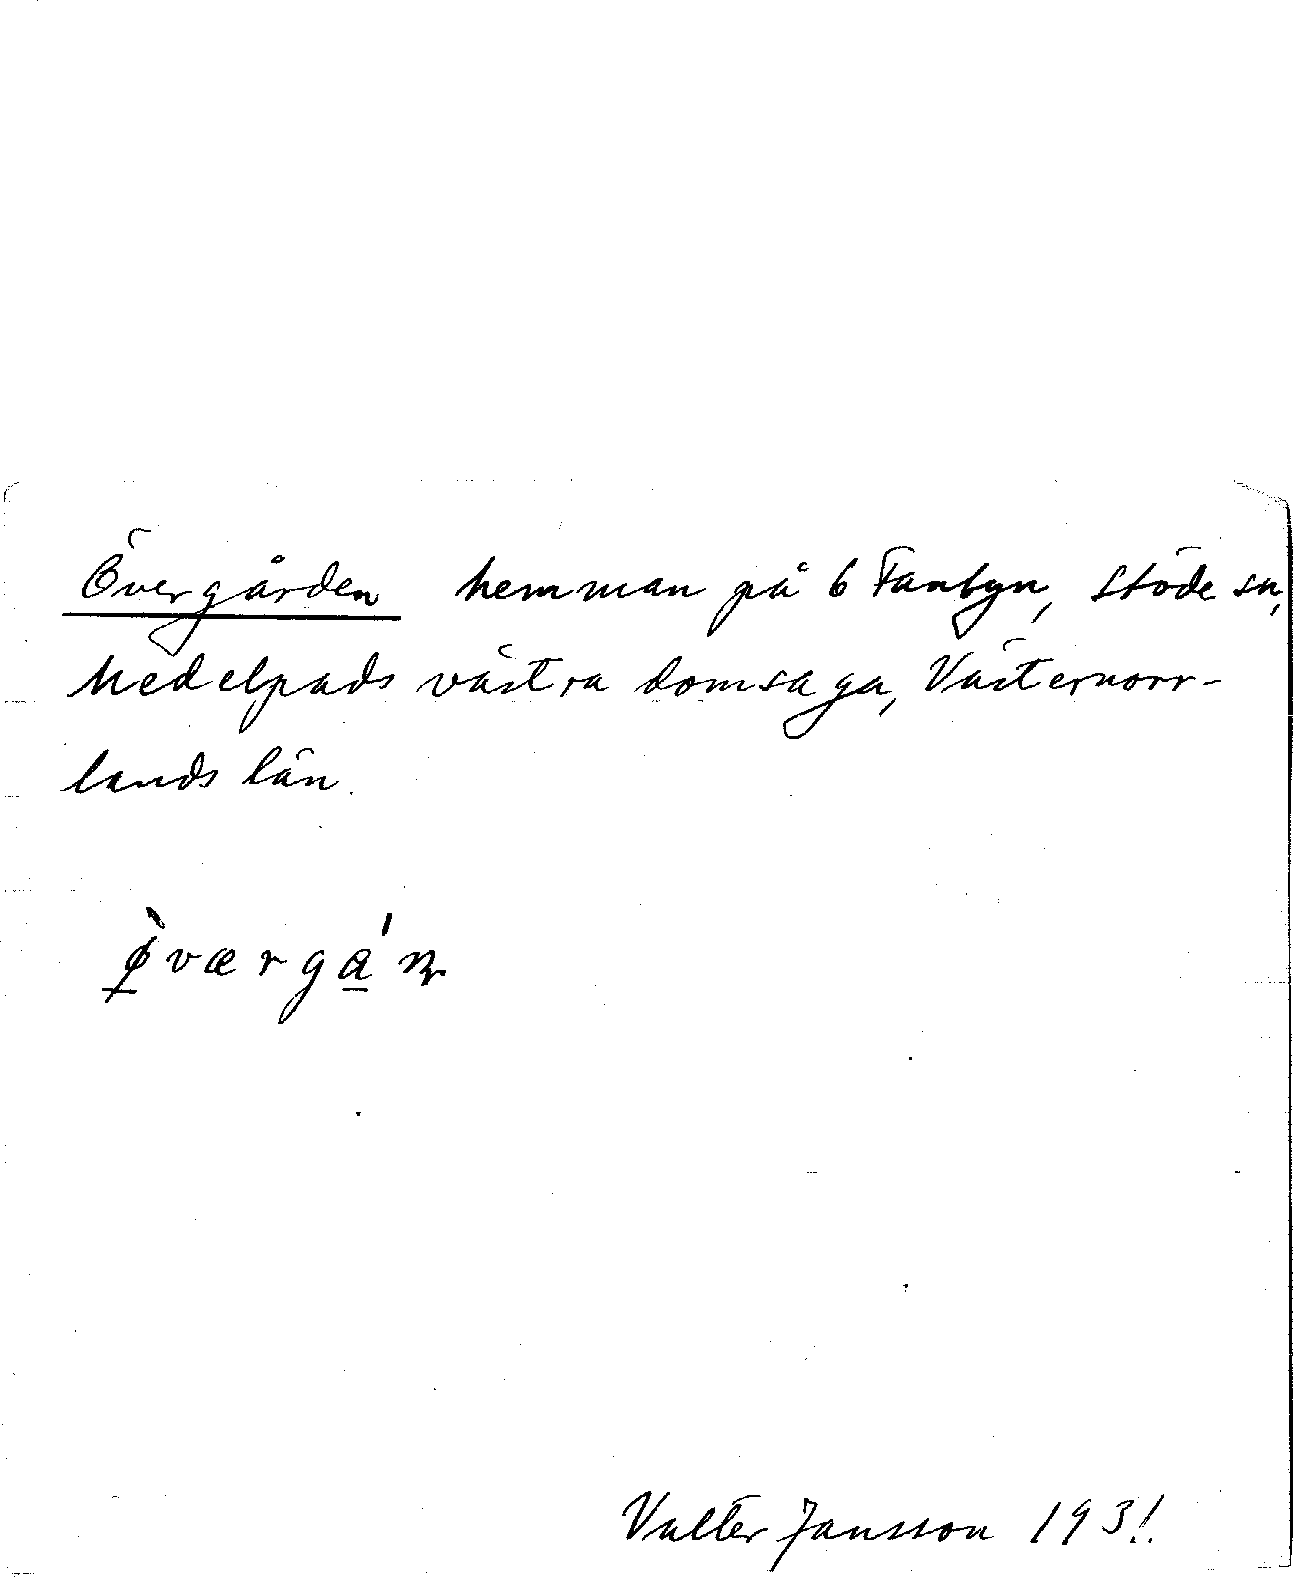 Övergården hemman på 6 Fanbyn, Stöde sn,
Medelpads västra domsaga, Västernorr-
lands län.
Valter Jansson 1931.